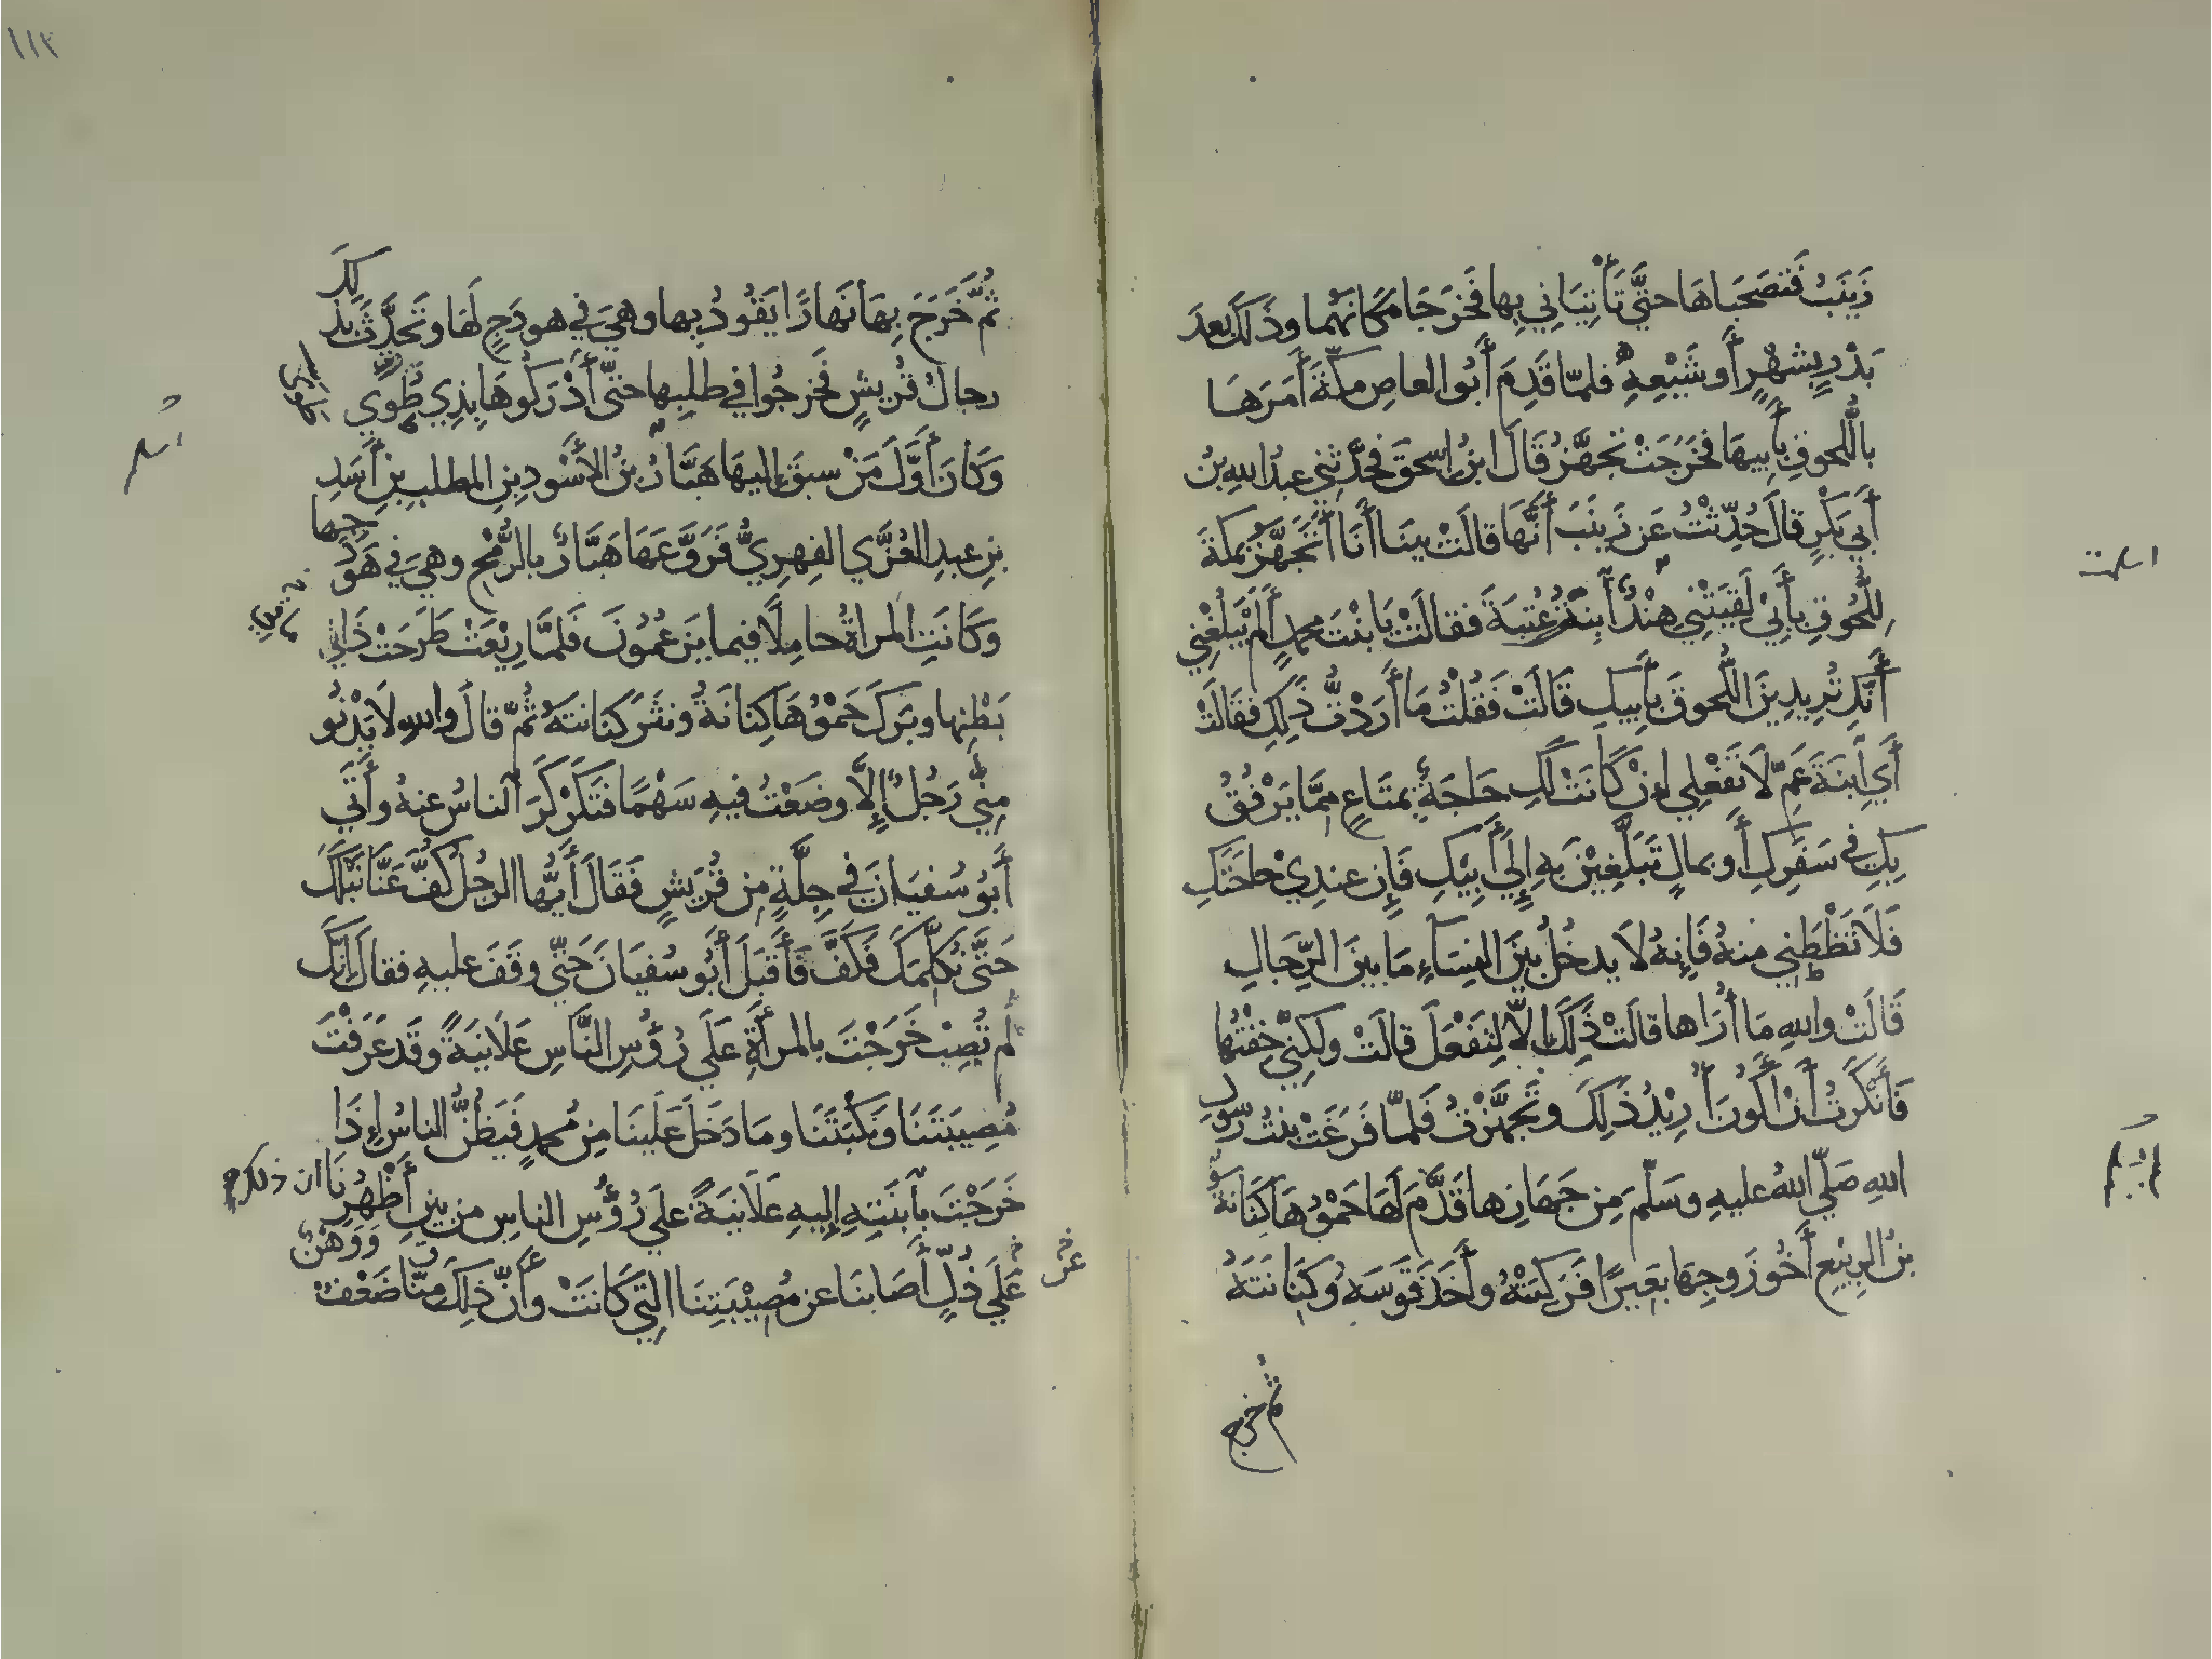 زَيْنَبُ فَتَصْحَبَاهَا حتَّى تَأْتِيَانِي بِها فَخَرَجَا مَكَانَهُما وذَلكَ بعدَ
بَدْرٍ بِشَهْرٍ أَو شَيْعِهِ فلمّا قَدِمَ أَبُو العاصِ مكّةَ أَمَرَهَا
باللُّحوقِ بأَبِيهَا فخَرَجَتْ تَجَهَّزُ قَالَ ابنُ اسحقَ فحَدَّثني عبدُ اللهِ بنُ
أَبي بَكْرٍ قالَ حُدِّثْتُ عَن زَينَبَ أَنَّهَا قالَتْ بينَا أَنَا أَتَجَهَّزُ بمَكةَ
لِلُّحُوقِ بأَبِي لَقِيَتْنِي هِنْدُ ابنَةُ عُتبةَ فقالَتْ يَا بنْتَ محمدٍ أَلَمْ يَبلُغْنِي
أَنَّكِ تُرِيدِينَ اللُّحوقَ بأَبِيكِ قَالَتْ فَقُلْتُ مَا أَرَدْتُّ ذَلِكِ فقَالَتْ
أَيِ ابنَةَ عَمِّ لَا تَفْعلِي اِنْ كَانَتْ لَكِ حَاجَةٌ بمتَاعٍ مِمَّا يَرْفُقُ
بِكِ فِي سَفَرِكِ أَو بمالٍ تَبَلَّغِيْنَ بِهِ إِلَي أَبِيْكِ فَإِن عِندِيْ حاجَتَكِ
فَلَا تَظْطَنِي منهُ فَإِنهُ لَا يدخُلُ بَينَ النِسَآءِ مَا بينَ الرِّجَالِ
قَالَتْ واللهِ مَا أُرَاها قالَتْ ذَلِكَ اِلَّا لِتَفْعَلَ قالَتْ ولَكِنِّي خِفْتُها
فَأَنْكَرْتُ أَنْ أَكُونَ أُرِيْدُ ذَلِكَ وتَجَهَّزْتُ فَلمّا فَرَغَتْ بِنتُ رسُولِ
اللهِ صَلّي اللهُ عليهِ وسَلَّمَ مِن جَهَازِها قَدَّمَ لَهَا حَمْوُهَا كِنَانَة
بنُ الرِبيْعِ أَخُو زَوجِهَا بَعِيرًا فَرَكِبَتْهُ وأَخَذَ قَوسَهُ وَكِنَانَتَهُ
ثم خرج
١١٢
ثُمَّ خَرَجَ بِهَا نَهَارًا يَقُودُ بِها وهيَ في هودَجٍ لَهَا وتَحدَّثَ بذلِكَ
رجالُ قُريشٍ فَخرجُوا في طلبِها حتّى أَدْرَكُوهَا بِذِي طُوي
وَكَانَ أَوَّلَ مَنْ سبقَ إليهَا هَبَّارُ بنُ الأَسْودِ بنِ المطلبِ بنِ أَسَدِ
بنِ عبدِ العُزَّي الفِهريُّ فَرَوَّعَهَا هَبَّارٌ بالرُّمْحِ وهيَ في هَوْدَجِها
وكَانتِ المراةُ حامِلًا فيما يَزعُمُونَ فَلمَّا رِيْعَتْ طَرَحَتْ ذَا
بَطْنِها وبَرَكَ حَمْوُهَا كِنانَةُ ونثَرَ كنَانتَهُ ثُمّ قالَ واللهِ لَا يَدْنُو
مِنِّي رَجُلٌ إِلَّا وضَعْتُ فيهِ سَهْمًا فتَكَرْكَرَ الناسُ عنهُ وأَتَي
أَبُو سُفيَانَ في جِلَّةٍ مِن قُرَيشٍ فَقَالَ أَيُّها الرجُلُ كُفَّ عَنَّا نَبْلَكَ
حَتَّى نُكلِّمَكَ فَكَفَّ فَأَقبَلَ أَبُو سُفيَانَ حَتّي وقَفَ عليهِ فقالَ إِنَّكَ
لَم تُصِبْ خَرَجْتَ بالمرأَةِ عَلَي رُؤُسِ النَّاسِ عَلَانيَةً وقَد عَرَفْتَ
مُصِيبَتَنَا ونَكْبَتَنَا وما دَخَلَ عَلَينَا مِن مُحمدٍ فَيَظُنُّ الناسُ اِذَا
خَرَجْتَ بِابنَتِهِ إِليهِ عَلَانيَةً علي رُؤُسِ الناسِ مِن بَينِ أَظْهُرِنَا ان ذلك
عَلَي ذُلٍّ أَصَابنَا عن مُصِيْبَتِنَا التِي كَانَتْ وأَنّ ذَلِكَ مِنّا ضَعْف وَوَهْنٌ